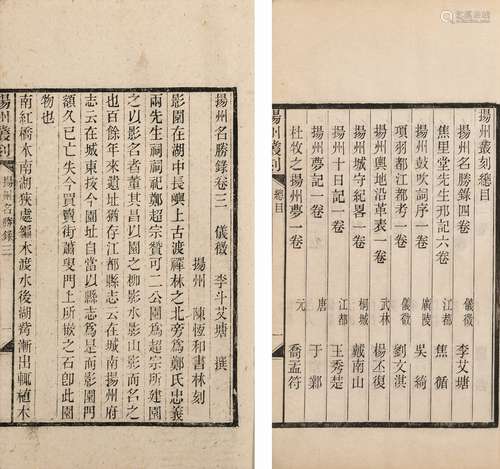 揚州叢刻總目
揚州名勝錄四卷 儀徵 李艾塘
焦里堂先生邗記六卷 江都 焦循
揚州鼓吹詞序一卷 廣陵 吳綺
項羽都江都考一卷 儀徵 劉文淇
揚州輿地沿革表一卷 武林 楊丕復
揚州城守紀畧一卷 桐城 戴南山
揚州十日記一卷 江都 王秀楚
揚州夢記一卷 唐 于鄴
杜牧之揚州夢一卷 元 喬孟符
揚州叢刻 總目 一
揚州名勝錄卷三 儀徵 李斗艾塘 撰
揚州 陳恆和書林刻
影園在湖中長嶼上古渡禪林之北旁爲鄭氏忠義
兩先生祠祠祀鄭超宗贊可二公園爲超宗所建園
之以影名者董其昌以園之柳影水影山影而名之
也百餘年來遺址猶存江都縣志云在城南揚州府
志云在城東按今園址自當以縣志爲是而影園門
額久已亡失今買賣街蕭叟門上所嵌之石卽此園
物也
南紅橋水南湖狹處木渡水後湖漸出輒植木
揚州叢刻 揚州名勝錄三 一